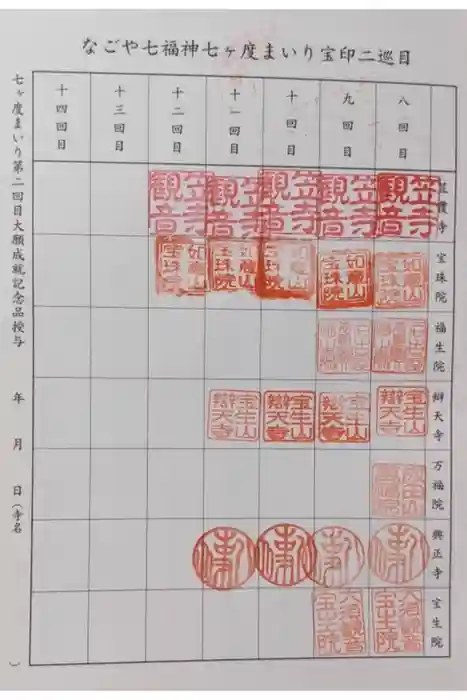 なごや七福神七ヶ度まいり宝印二巡目
八回目
九回目
十回目
十一回目
十二回目
十三回目
十四回目
笠覆寺
笠寺観音
笠寺観音
笠寺観音
笠寺観音
笠寺観音
宝珠院
如意山宝珠院
如意山宝珠院
如意山宝珠院
如意山宝珠院
如意山宝珠院
福生院
辯天寺
宝生山辯天寺
宝生山辯天寺
宝生山辯天寺
宝生山辯天寺
万福院
興正寺
宝生院
大須観音宝生院
大須観音宝生院
七ヶ度まいり第二回目大願成就記念品授与　年　月　日(寺名　)